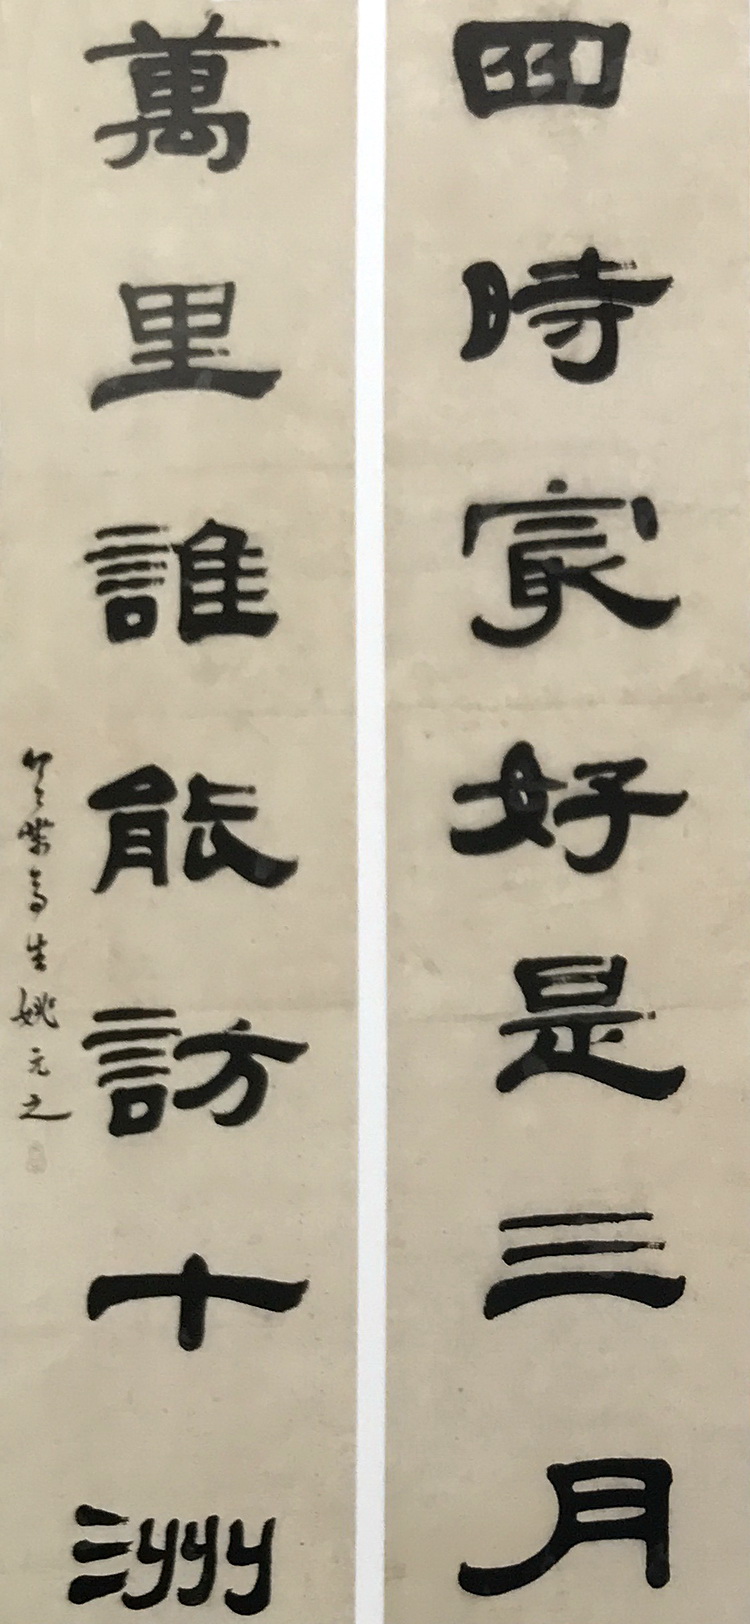 四時㝡好是三月
萬里誰能訪十洲
竹葉亭生姚元之